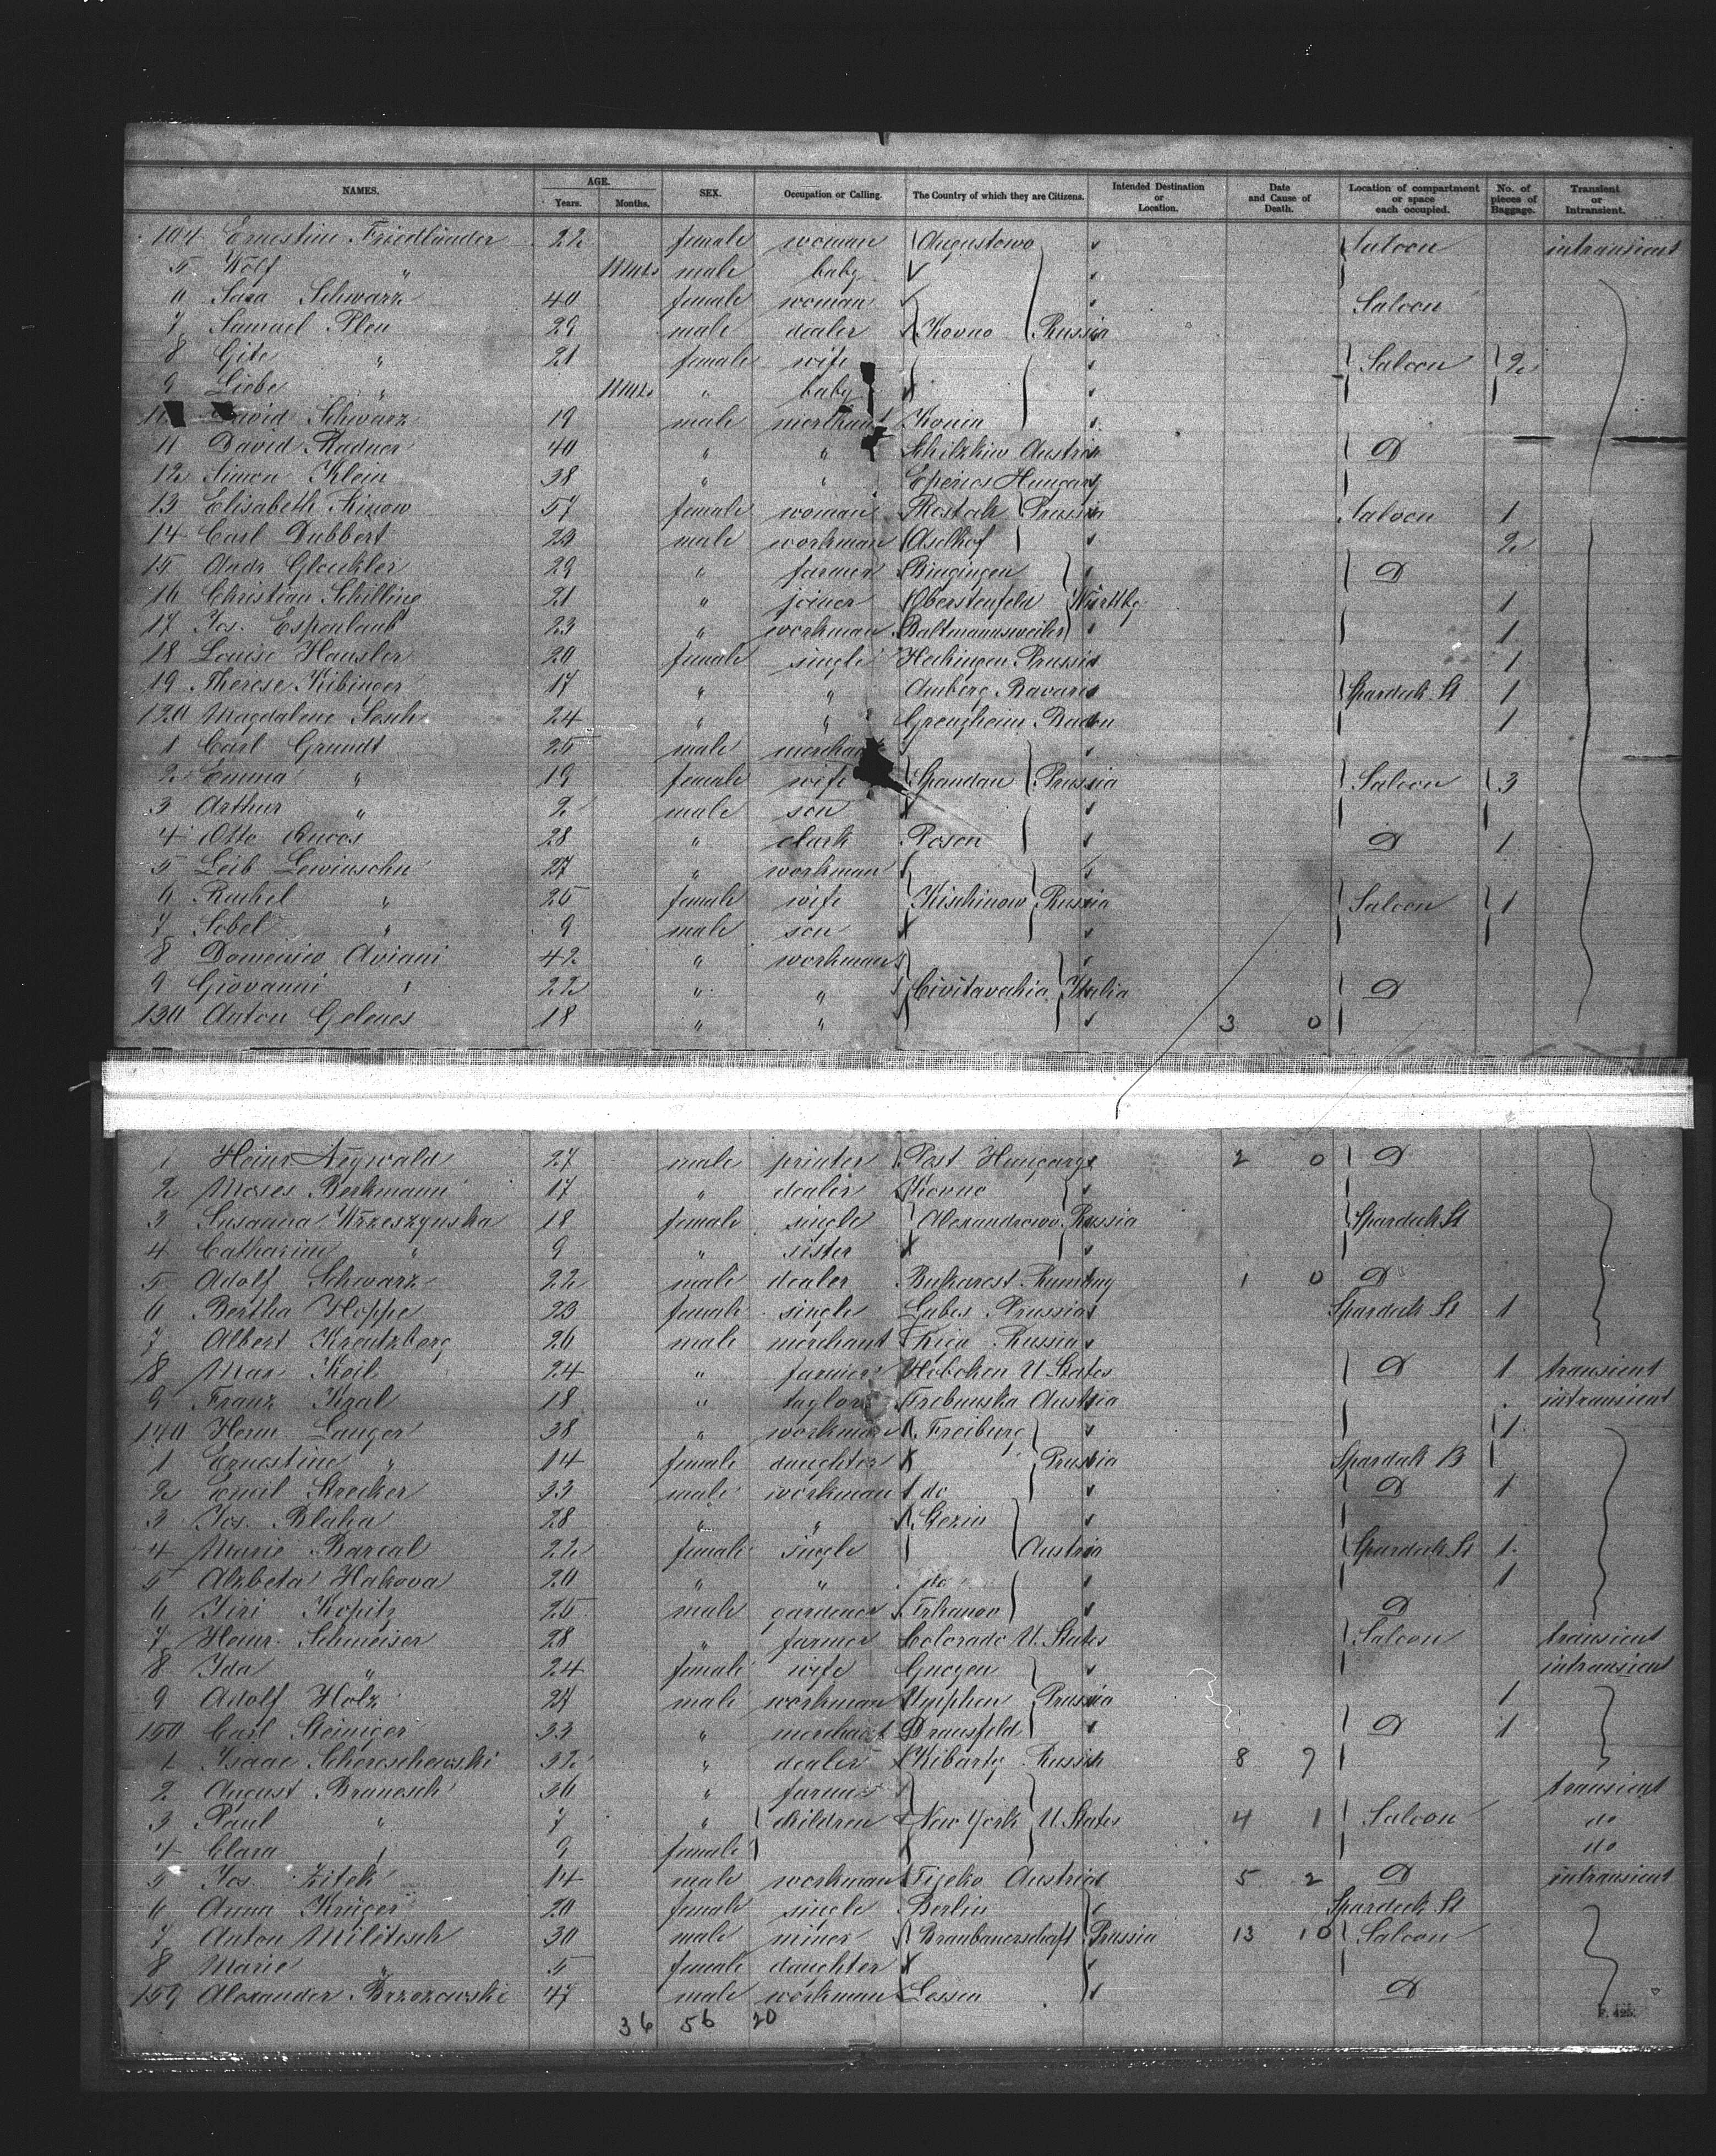 NAMES. AGE. Years. Months. SEX. Occupation or Calling. The Country of which they are Citizens. Intended Destination or Location. Date and Cause of Death. Location of compartment or space each occupied. No. of pieces of Baggage. Transient or Intransient.
104 Ernestine Friedländer 22 female woman Augustowo Saloon intransient
5 Wolf " male baby
6 Sara Schwarz 40 female woman Saloon
7 Samuel Plen 29 male dealer Kovno Russia
8 Gite " 21 female wife Saloon 2
9 Liebe " " baby
David Schwarz 19 male merchant Konin
11 David Radner 40 " " Austria D
12 Simon Klein 38 " " Eperies Hungary
13 Elisabeth 57 female woman Rostock Prussia Saloon 1
14 Carl Dubbert 23 male workman 2
15 Andr 29 " farmer D
16 Christian Schilling 21 " joiner Oberstenfeld Württbg 1
17 Jos. Espenlaub 23 " workman Baltmannsweiler 1
18 Louise Hausler 20 female single Hechingen Prussia 1
19 Therese Kibinger 17 " " Amberg Bavaria Spardeck St 1
120 Magdalene 24 " " Baden 1
1 Carl Grundt 25 male merchant
2 Emma " 19 female wife Spandau Prussia Saloon 3
3 Arthur " 2 male son
4 Otto 28 " clark Posen D 1
5 Leib Lewinschn 27 " workman
6 Rachel " 25 female wife Kischinow Russia Saloon 1
7 Sobel " 9 male son
8 Domenico Aviani 42 " workman
9 Giovanni " 22 " " Civitavechia Italia D
130 Anton Gelenes 18 " " 3 0
1 Heinr Neywald 27 male printer Pest Hungary 2 0 D
2 Moses Berkmann 17 " dealer Kovno
3 Susanna Krzeszynska 18 female single Alexandrowo Russia Spardeck St
4 Catharine " 9 " sister
5 Adolf Schwarz 22 male dealer Bukarest 1 0 D
6 Bertha Hoppe 23 female single Labes Prussia Spardeck St 1
7 Albert Kreutzberg 26 male merchant Russia
8 Max Keil 24 " farmer Hoboken U States D 1 transient
9 Franz Kral 18 " taylor Austria intransient
140 Herm Langer 38 " workman Freiburg 1
1 Ernestine " 14 female daughter Prussia Spardeck B
2 Emil Strecker 33 male workman do D 1
3 Jos. Blaha 28 " "
4 Marie Barcal 22 female single Austria Spardeck St 1
5 Alzbeta Hakova 20 " " do 1
6 Jiri Kopitz 25 male gardener Trhanov D
7 Heinr. Schmeiser 28 " farmer Colorado U. States Saloon transient
8 Ida " 24 female wife Gnoyen intransient
9 Adolf Holz 27 male workman Prussia 1
150 Carl Steiniger 33 " merchant Dransfeld D 1
1 Isaac Schereschewski 52 " dealer Kibarty Russia 8 7
2 August Branesch 36 " farmer transient
3 Paul " 7 " children New York U. States 4 1 Saloon do
4 Clara " 9 female do
5 Jos. Zitek 14 male workman Austria 5 2 D intransient
6 Anna Krüger 20 female single Berlin Spardeck St
7 Anton Militsch 30 male miner Braubauerschaft Prussia 13 10 Saloon
8 Marie " 5 female daughter
159 Alexander Brzozowski 47 male workman Lessen D
36 56 20
F. 425.